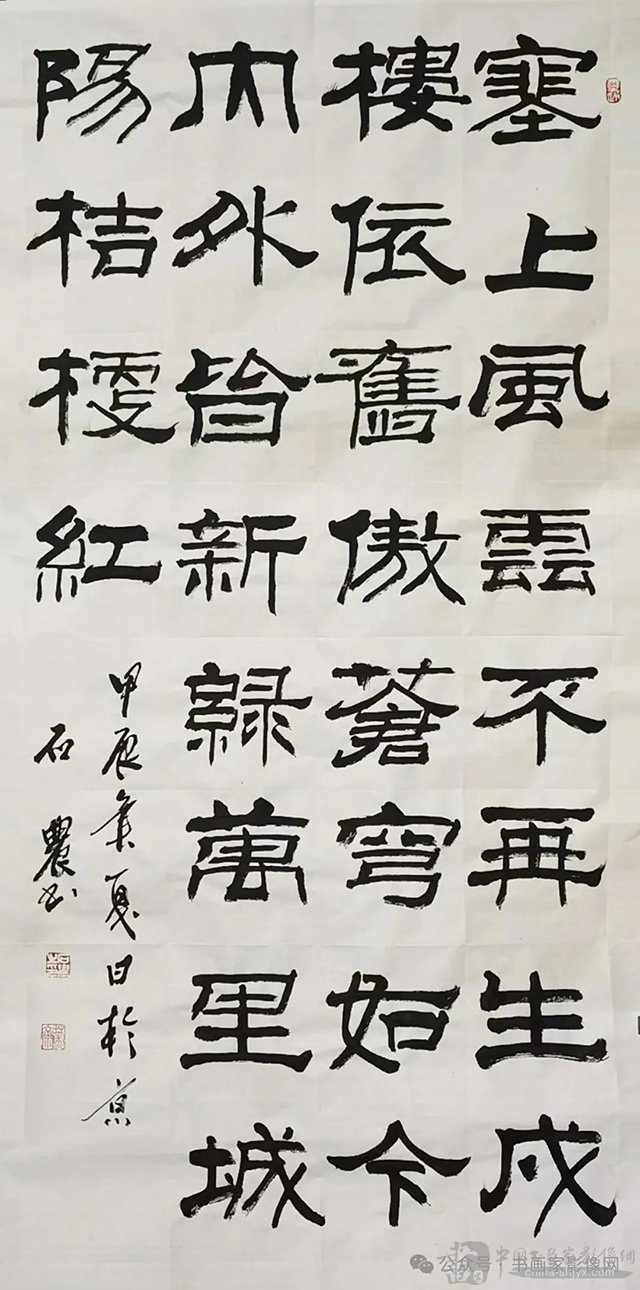 塞上風雲不再生戍
樓依舊傲蒼穹如今
內外皆新綠萬里城
陽桔梗紅
甲辰年夏日於京
石農书
公众号 · 书画家影像网
china-shjyx.com